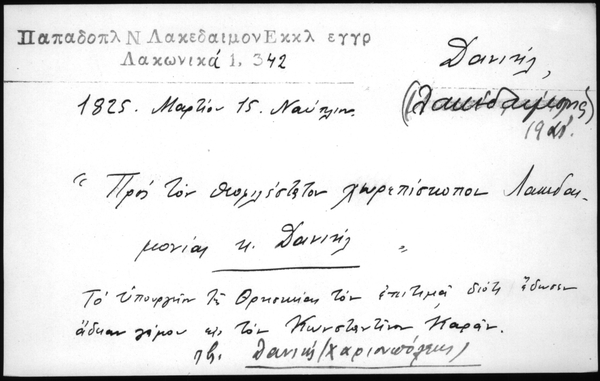 Παπαδοπλ Ν ΛακεδαιμονΕκκλ εγγρ
Λακωνικά 1, 342
Δανιήλ,
1825. Μαρτίου 15. Ναύπλιον.
(Λακεδαιμονίας)
“ Πρός τόν θεοφιλέστατον χωρεπίσκοπον Λακεδαι-
μονίας κ. Δανιήλ „
Τό Ὑπουργεῖον τῆς Θρησκείας τόν ἐπιτιμᾷ διότι ἔδωσεν
ἄδειαν γάμου εἰς τόν Κωνσταντῖνον Καράν.
πβ. Δανιήλ (Χαριουπόλεως)